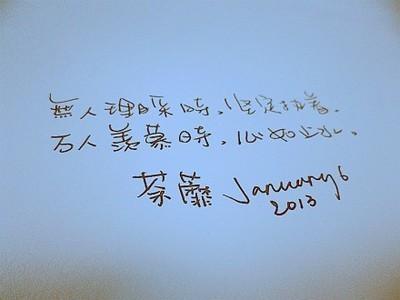 無人理睬時，坚定执着.
万人羡慕時，心如止水.
荼蘼 January 6
2013